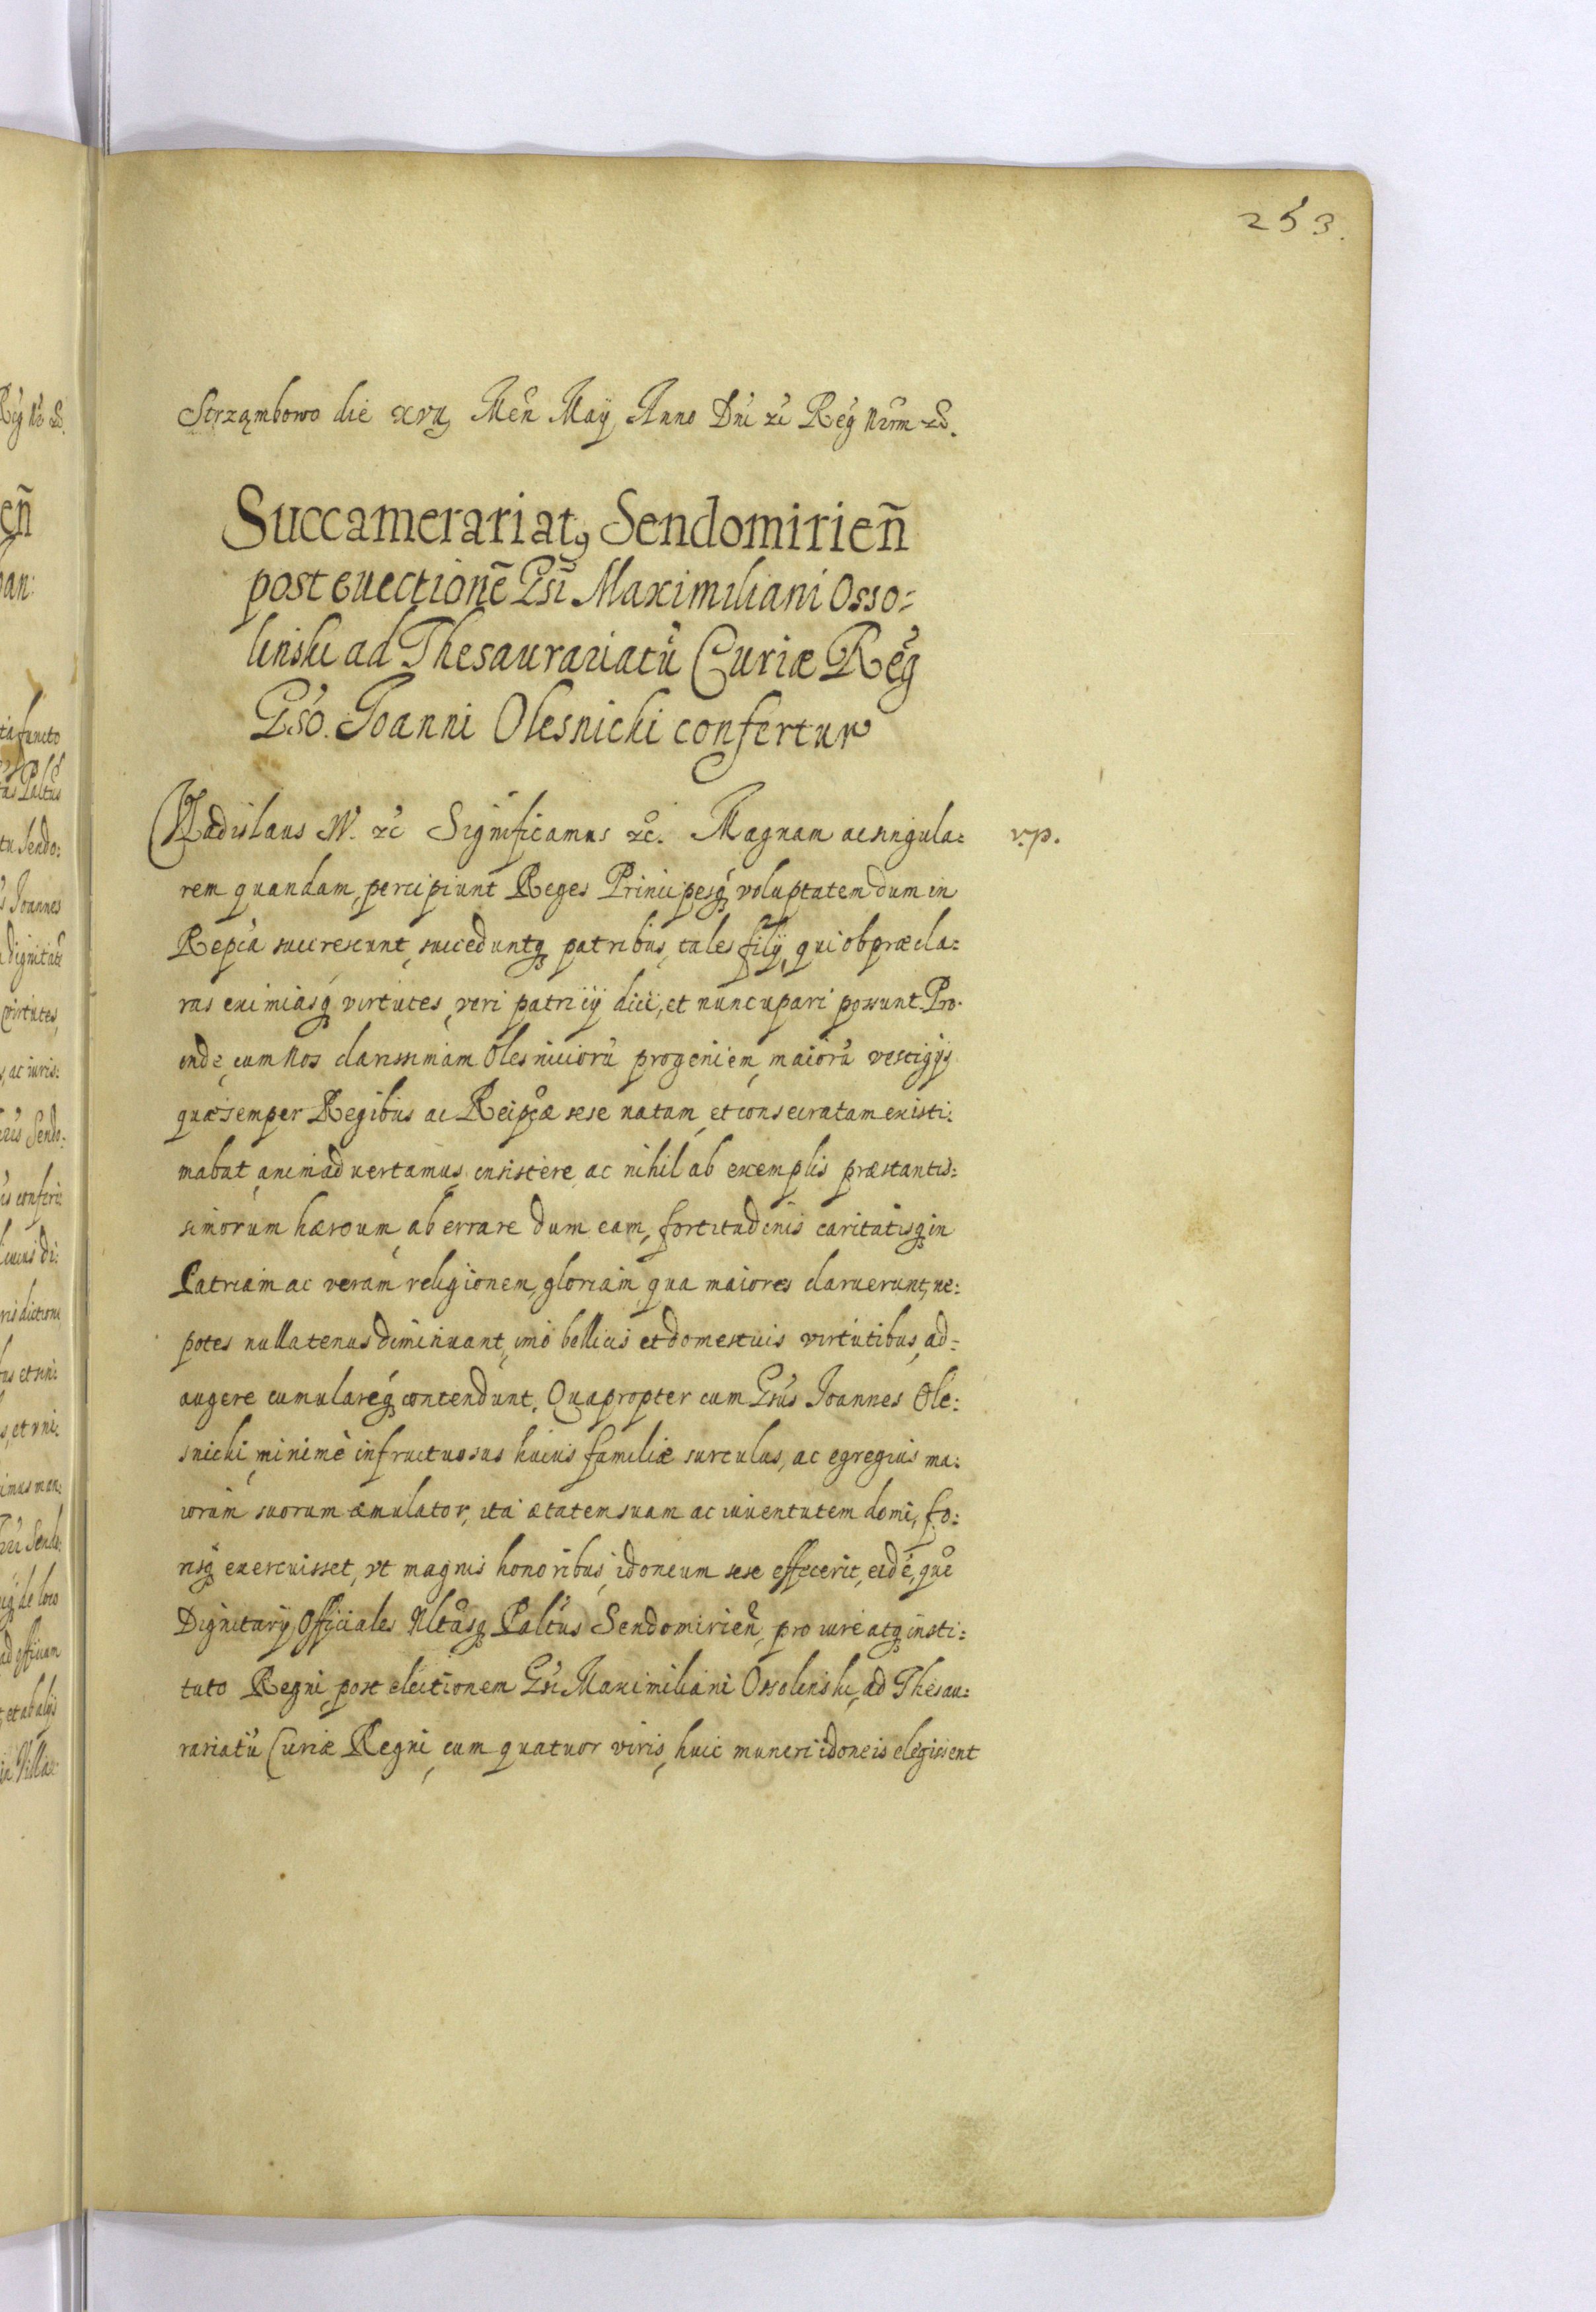 253.
Strząmbowo die xvij Men̄ Maij Anno Dn̄i &c Reg Nr̄m &c.
Succamerariatꝰ Sendomirien̄
post euectionē Gsi Maximiliani Osso=
linski ad Thesaurariatū Curiæ Reg
Gso. Joanni Olesnicki confertur
Vladislaus IV. &c Significamus &c. Magnam ac singula= v.p.
rem quandam, percipiunt Reges Principesq́ voluptatem dum in
Repca succrescunt, succeduntq patribus, tales filij, qui ob præcla=
ras eximiasq virtutes, veri patricij dici, et nuncupari possunt. Pro.
inde, cum Nos clarissimam Olesniciorū progeniem, maiorū vestigijs
quæ semper Regibus ac Reipcæ sese natam, et consecratam existi:
mabat, animaduertamus, insistere, ac nihil ab exemplis præstantis:
simorum hæroum, aberrare dum eam, fortitudinis caritatisq in
Patriam ac veram religionem, gloriam, qua maiores claruerunt, ne:
potes nullatenus diminuant, imò bellicis et domesticis virtutibus, ad=
augere cumulareq́ contendunt. Quapropter cum Gsus Joannes Ole:
snicki, minimè infructuosus huius familiæ surculus, ac egregius ma:
iorum suorum æmulator, ita ætatem suam ac iuuentutem domi, fo:
risq exercuisset, vt magnis honoribus, idoneum sese effecerit, eidē, que
Dignitarij, Officiales Nltasq Paltus Sendomirien̄, pro iure atq insti:
tuto Regni, post electionem Gsi Maximiliani Ossolinski, ad Thesau:
rariatū Curiæ Regni, cum quatuor viris, huic muneri idoneis elegissent